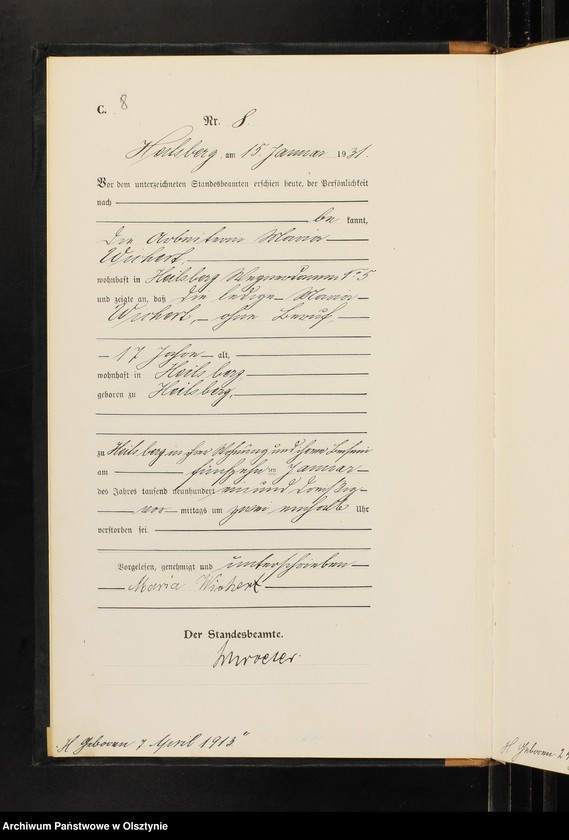 C. 8
Nr. 8.
Heilsberg, am 15. Januar 1931.
Vor dem unterzeichneten Standesbeamten erschien heute, der Persönlichkeit
nach
be kannt,
die Arbeiterin Maria
Wichert,
wohnhaft in Heilsberg 5
und zeigte an, daß die ledige Maria
Wichert, ohne Beruf,
17 Jahre alt,
wohnhaft in Heilsberg
geboren zu Heilsberg,
zu Heilsberg in ihrer Wohnung und ihrem Beisein
am fünfzehnten Januar
des Jahres tausend neunhundert einund dreißig
vor mittags um zwei einhalb Uhr
verstorben sei.
Vorgelesen, genehmigt und unterschrieben
Maria Wichert
Der Standesbeamte.
H Geboren 7 April 1913"
H Geboren 2
Archiwum Państwowe w Olsztynie